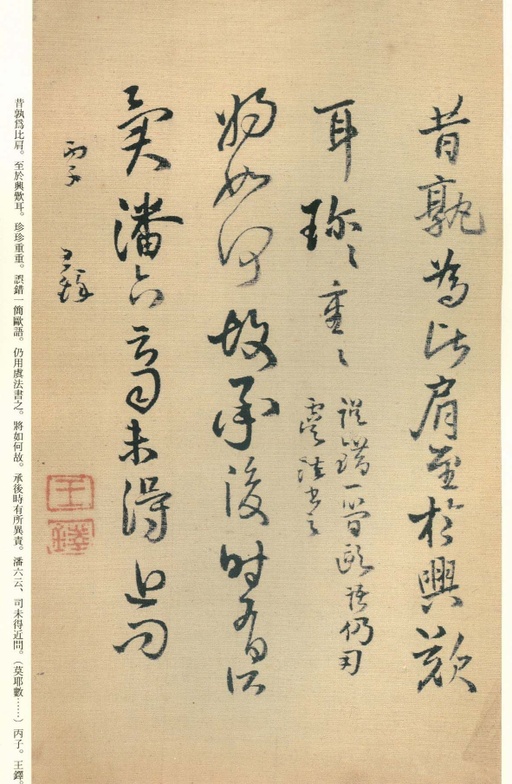 昔孰為比肩至於興歎
耳珍〻重〻
誤錯一簡歐語仍用
虞法書之
將如何故承後時有所
異潘六云司未得近問
丙子 王鐸
王鐸
昔孰為比肩。至於興歎耳。珍珍重重。誤錯一簡歐語。仍用虞法書之。將如何故。承後時有所異責。潘六云、司未得近問。（莫耶數……）丙子。王鐸